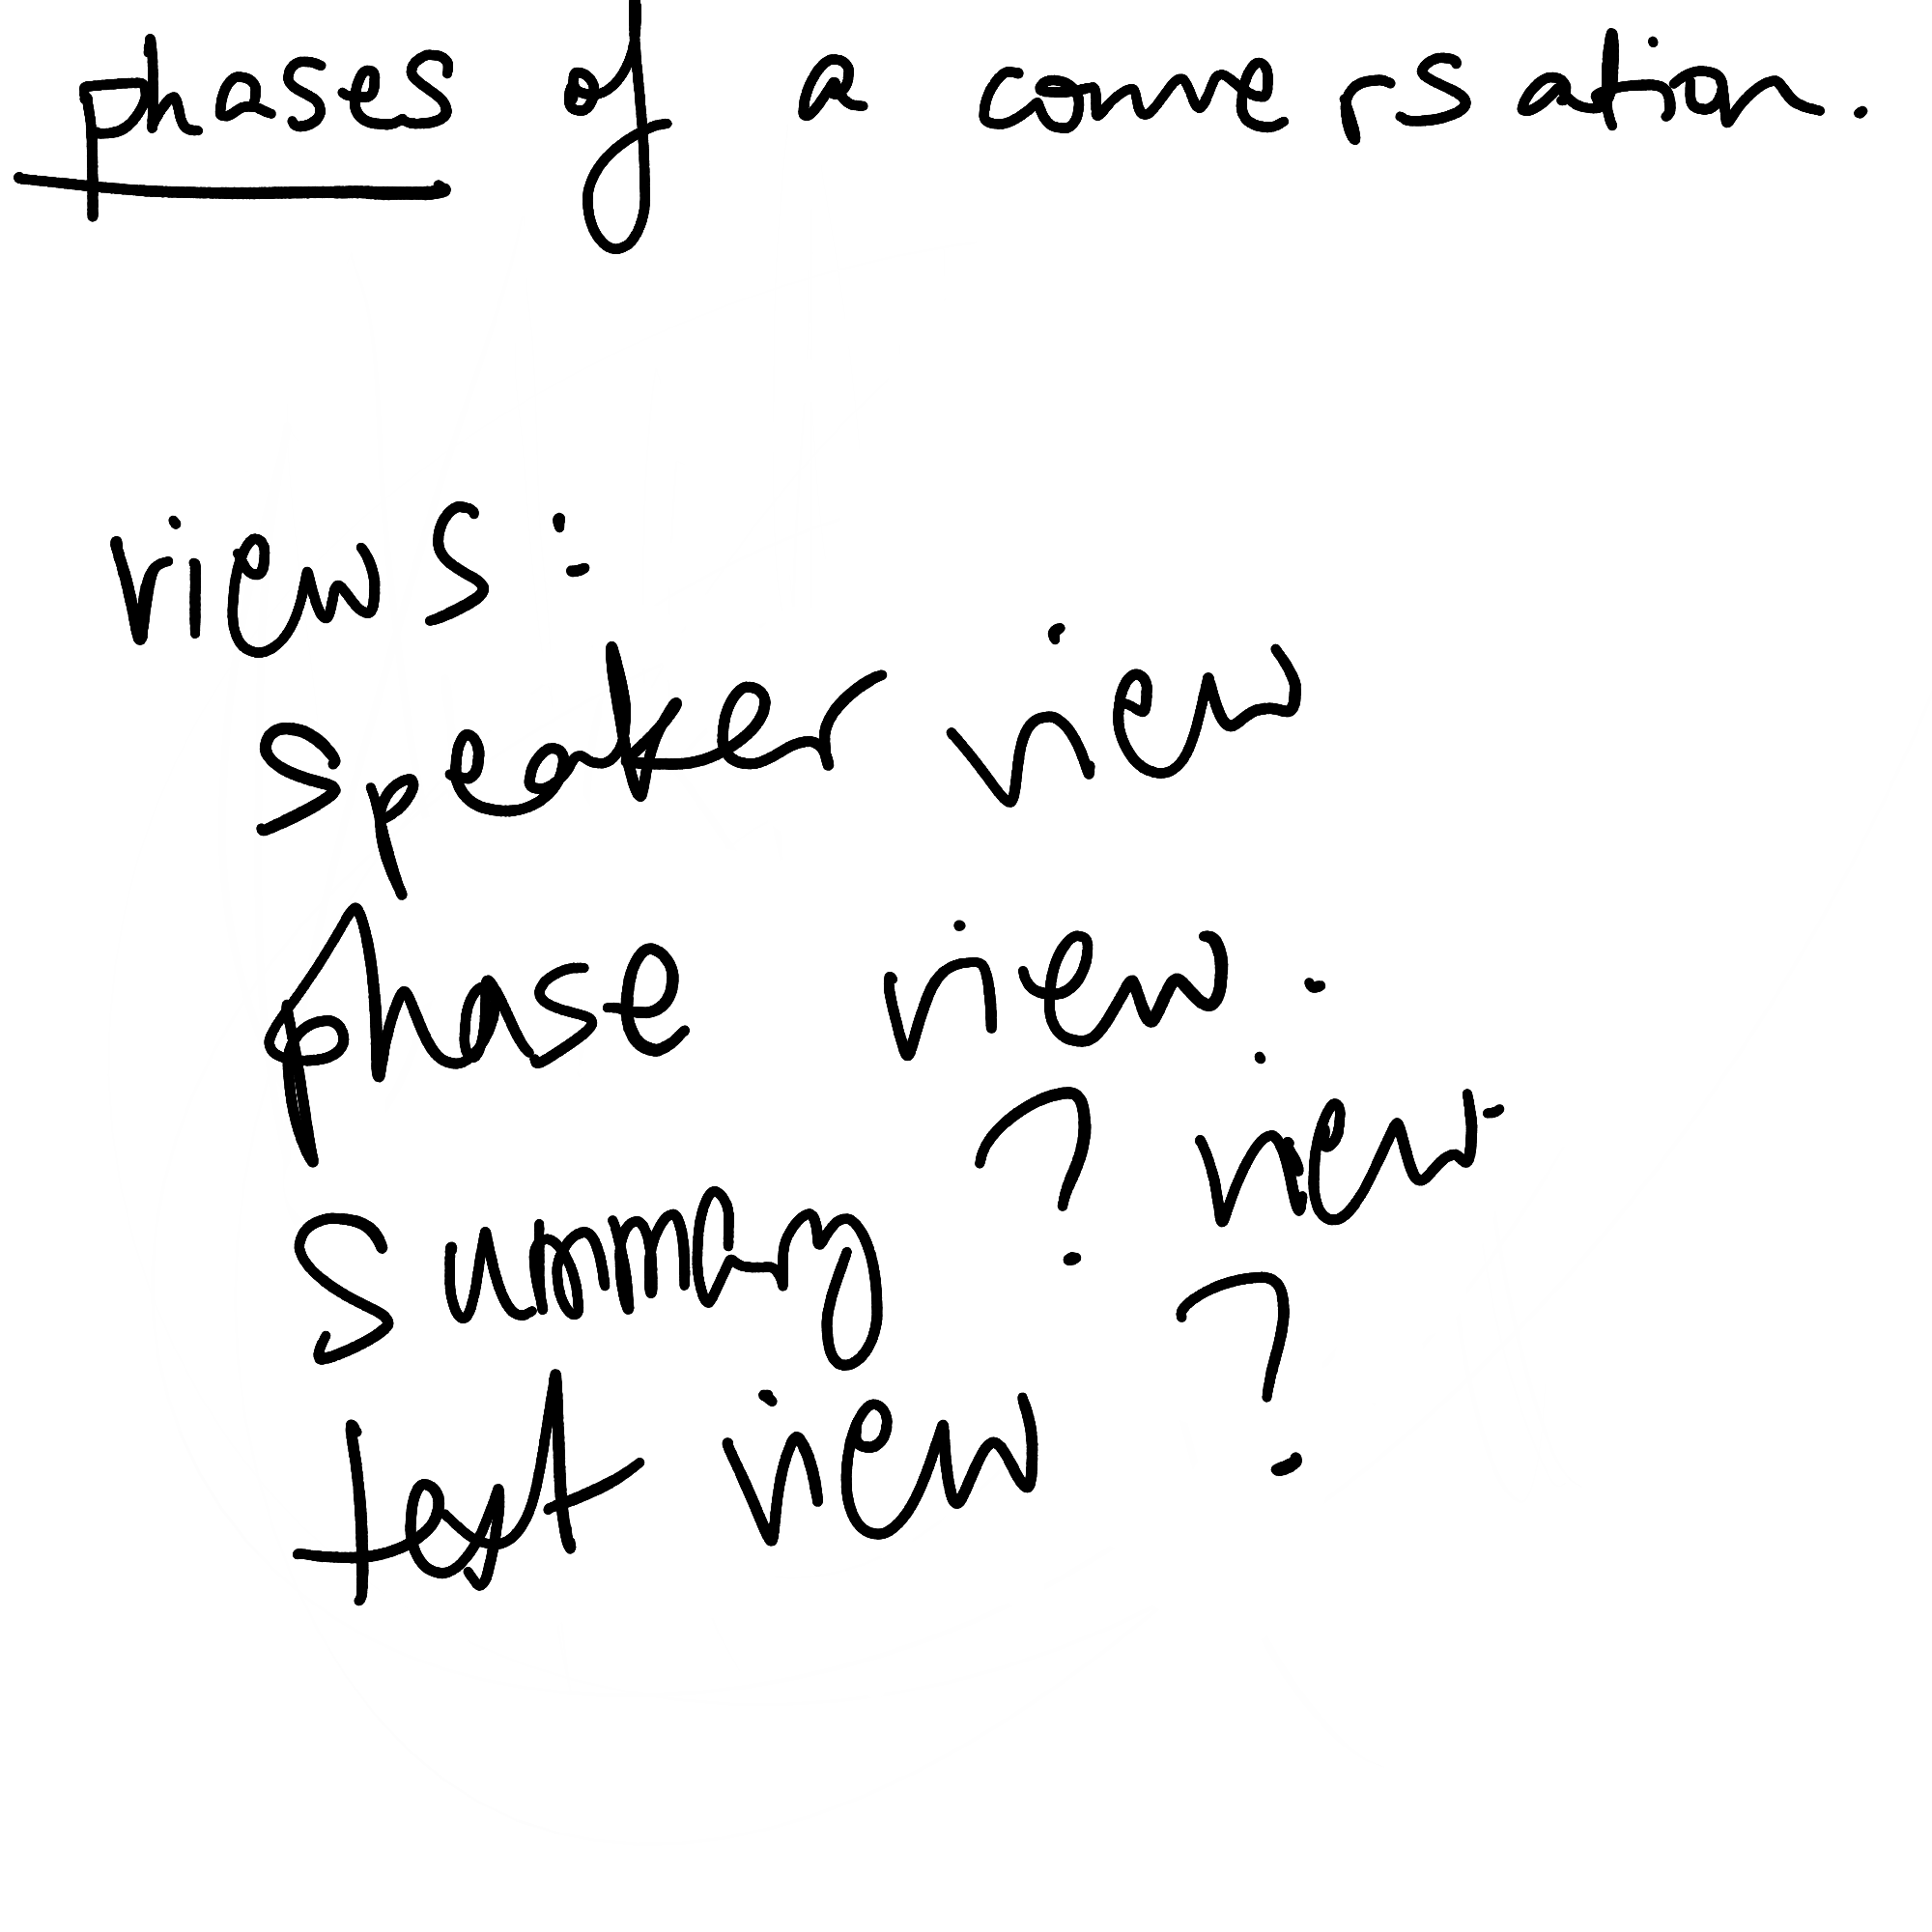 phases of a conversation.
views:
speaker view
phase view.
summary ? view
text view ?